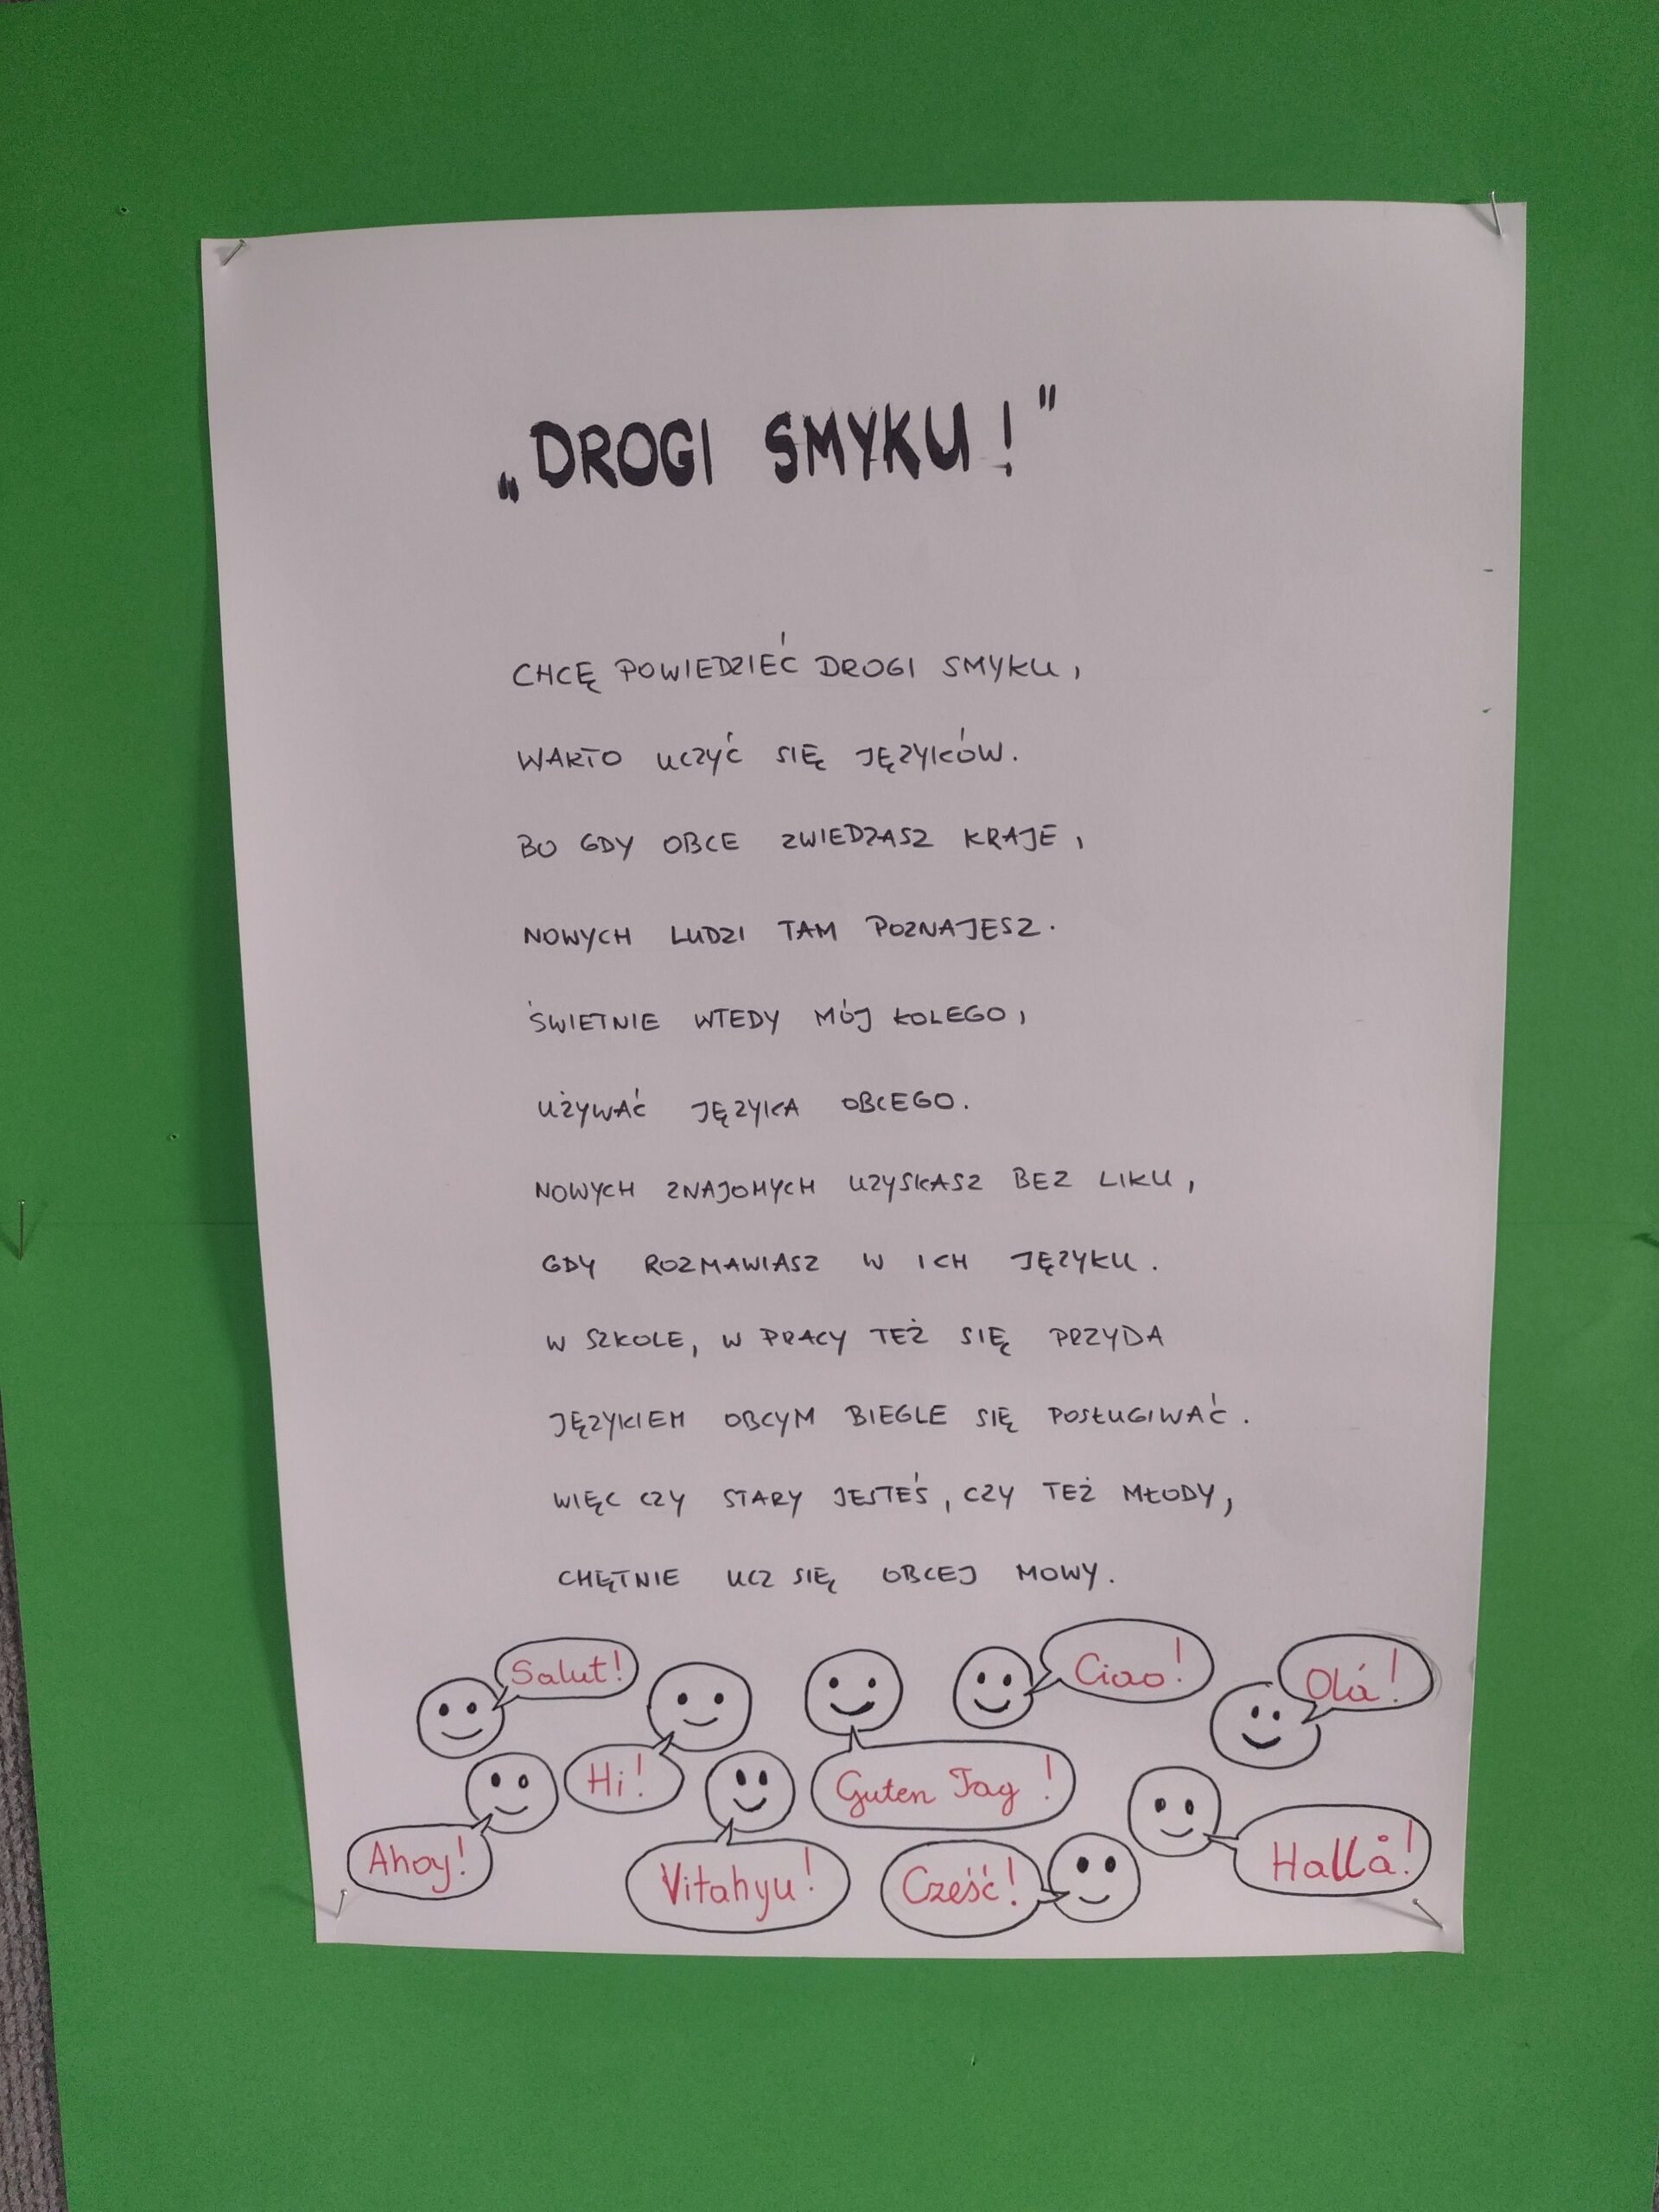 „DROGI SMYKU!"
CHCĘ POWIEDZIEĆ DROGI SMYKU,
WARTO UCZYĆ SIĘ JĘZYKÓW.
BO GDY OBCE ZWIEDZASZ KRAJE,
NOWYCH LUDZI TAM POZNAJESZ.
ŚWIETNIE WTEDY MÓJ KOLEGO,
UŻYWAĆ JĘZYKA OBCEGO.
NOWYCH ZNAJOMYCH UZYSKASZ BEZ LIKU,
GDY ROZMAWIASZ W ICH JĘZYKU.
W SZKOLE, W PRACY TEŻ SIĘ PRZYDA
JĘZYKIEM OBCYM BIEGLE SIĘ POSŁUGIWAĆ.
WIĘC CZY STARY JESTEŚ, CZY TEŻ MŁODY,
CHĘTNIE UCZ SIĘ OBCEJ MOWY.
Salut!
Ciao!
Olá!
Hi!
Guten Tag!
Ahoy!
Vitahyu!
Cześć!
Hallå!